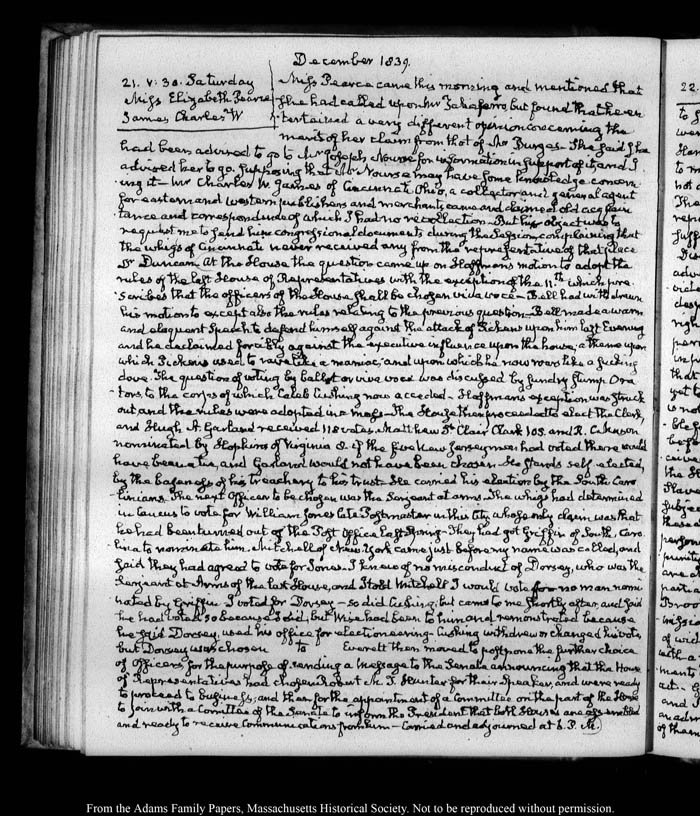 December 1839.
21. V: 30. Saturday
Miss Elizabeth Pearce
James Charles W
Miss Pearce came this morning and mentioned that
she had called upon Mr Taliaferro, but found that he en-
-tertained a very different opinion concerning the
merit of her claim from that of Mr Burges. She said she
had been advised to go to Mr Joseph Nourse for information in support of it, and I
advised her to go. Supposing that Mr Nourse may have some knowledge concern-
ing it— Mr Charles W. James of Cincinnati Ohio, a collector and general agent
for eastern and western publishers and merchants, came and claimed old acquain-
tance and correspondence of which I had no recollection. But his object was to
request me to send him congressional documents during the Session, complaining that
the whigs of Cincinnati never received any from the representative of that place
Dr Duncan. At the House the question came up on Hoffman's motion to adopt the
rules of the last House of Representatives with the exception of the 11th which pre-
-scribes that the officers of the House shall be chosen viva voce— Bell had withdrawn
his motion to except also the rules relating to the previous question— Bell made a warm
and eloquent Speech to defend himself against the attack of Pickens upon him last Evening
and he declaimed forcibly against the executive influence upon the house; a theme upon
which Pickens used to rave like a maniac, and upon which he now roars like a sucking
dove. The question of voting by ballot or viva voce was discussed by sundry stump Ora-
-tors, to the corps of which Caleb Cushing now acceded— Hoffman's exception was struck
out and the rules were adopted in a mass— The House then proceeded to elect the Clerk,
and Hugh A. Garland received 118 votes. Matthew St Clair Clark 105. and R. C. Mason
nominated by Hopkins of Virginia 8. if the five New Jerseymen had voted there would
have been a tie, and Garland would not have been chosen. He stands self elected,
by the baseness of his treachery to his trust— He carried his election by the South Caro-
-linians. The next Officer to be chosen was the Serjeant at arms. The whigs had determined
in Caucus to vote for William Jones late Postmaster in this City whose only claim was that
he had been turned out of the Post Office last Spring— They had got Griffin of South Caro-
lina to nominate him. Mitchell of New York came just before my name was called, and
said they had agreed to vote for Jones— I knew of no misconduct of Dorsey, who was the
Serjeant at Arms of the last House, and I told Mitchell I would vote for no man nomi-
-nated by Griffin. I voted for Dorsey— so did Cushing, but came to me shortly after, and said
he had voted so because I did, but Wise had been to him and remonstrated because
he said Dorsey, used his office for electioneering— Cushing withdrew or changed his vote,
but Dorsey was chosen to Everett then moved to postpone the further choice
of Officers for the purpose of sending a Message to the Senate announcing that the House
of Representatives had chosen Robert M. T. Hunter for their Speaker, and were ready
to proceed to business; and then for the appointment of a Committee on the part of the House
to join with a Committee of the Senate to inform the President that both Houses are assembled
and ready to receive communications from him— Carried and adjourned at 6. P. M.
22.
From the Adams Family Papers, Massachusetts Historical Society. Not to be reproduced without permission.